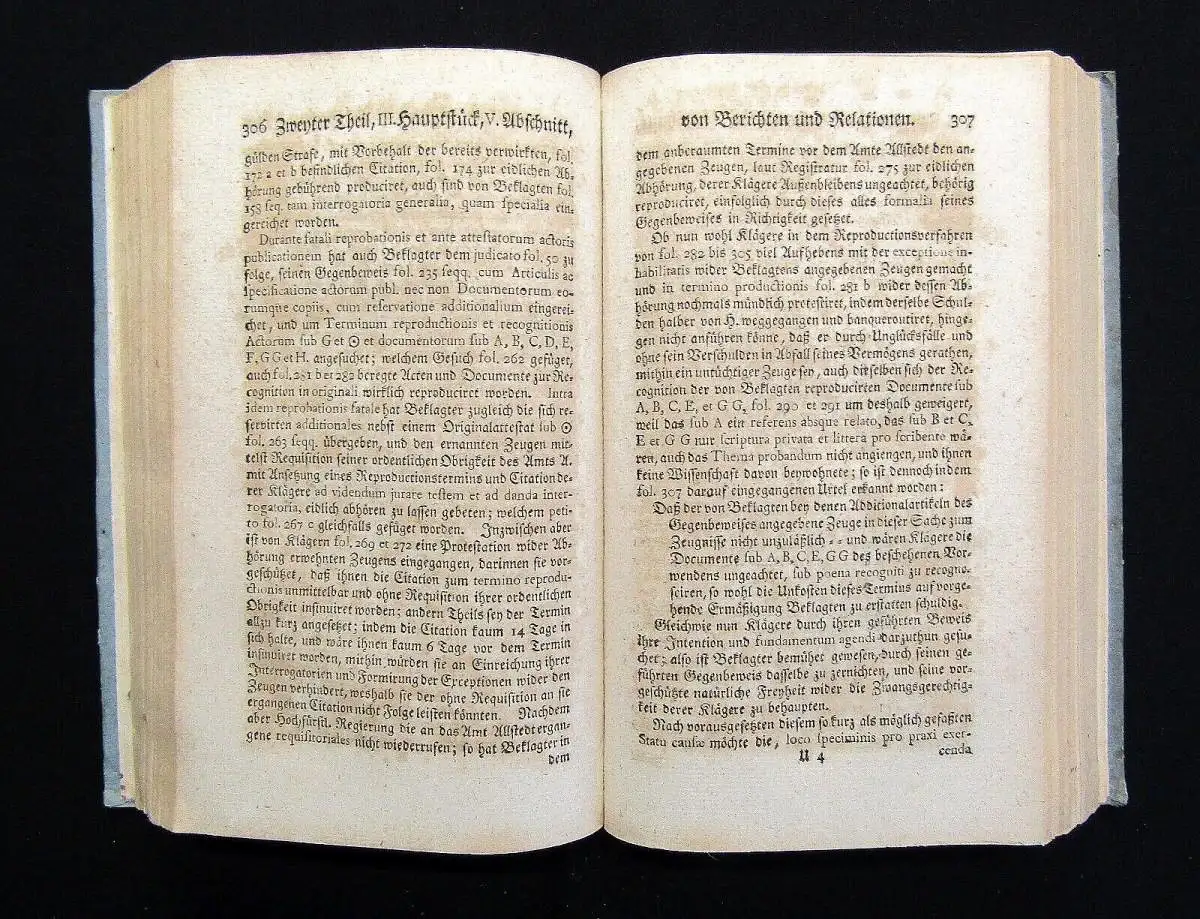 306 Zweyter Theil, III. Hauptstück, V. Abschnitt,
gülden Strafe, mit Vorbehalt der bereits verwirkten, fol.
172 a et b befindlichen Citation, fol. 174 zur eidlichen Ab-
hörung gebührend produciret, auch sind von Beklagten fol.
158 seq. tam interrogatoria generalia, quam specialia ein-
gereichet worden.
Durante fatali reprobationis et ante attestatorum actoris
publicationem hat auch Beklagter dem judicato fol. 50 zu
folge, seinen Gegenbeweis fol. 235 seqq. cum Articulis ac
specificatione actorum publ. nec non Documentorum eo-
rumque copiis, cum reservatione additionalium eingerei-
chet, und um Terminum reproductionis et recognitionis
Actorum sub G et ☉ et documentorum sub A, B, C, D, E,
F, GG et H. angesuchet; welchem Gesuch fol. 262 gefüget,
auch fol. 281 b et 282 beregte Acten und Documente zur Re-
cognition in originali wirklich reproduciret worden. Intra
idem reprobationis fatale hat Beklagter zugleich die sich re-
servirten additionales nebst einem Originalattestat sub ☉
fol. 263 seqq. übergeben, und den ernannten Zeugen mit-
telst Requisition seiner ordentlichen Obrigkeit des Amts A.
mit Ansetzung eines Reproductionstermins und Citation de-
rer Klägere ad videndum jurare testem et ad danda inter-
rogatoria, eidlich abhören zu lassen gebeten; welchem peti-
to fol. 267 c gleichfalls gefüget worden. Inzwischen aber
ist von Klägern fol. 269 et 272 eine Protestation wider Ab-
hörung erwehnten Zeugens eingegangen, darinnen sie vor-
geschützet, daß ihnen die Citation zum termino reprodu-
ctionis unmittelbar und ohne Requisition ihrer ordentlichen
Obrigkeit insinuiret worden: andern Theils sey der Termin
allzu kurz angesetzet; indem die Citation kaum 14 Tage in
sich halte, und wäre ihnen kaum 6 Tage vor dem Termin
insinuiret worden, mithin würden sie an Einreichung ihrer
Interrogatorien und Formirung der Exceptionen wider den
Zeugen verhindert, weshalb sie der ohne Requisition an sie
ergangenen Citation nicht Folge leisten könnten. Nachdem
aber Hochfürstl. Regierung die an das Amt Allstedt ergan-
gene requisitoriales nicht wiederrufen; so hat Beklagter in
dem
von Berichten und Relationen. 307
dem anberaumten Termine vor dem Amte Allstedt den an-
gegebenen Zeugen, laut Registratur fol. 275 zur eidlichen
Abhörung, derer Klägere Außenbleibens ungeachtet, behörig
reproduciret, einfolglich durch dieses alles formalia seines
Gegenbeweises in Richtigkeit gesetzet.
Ob nun wohl Klägere in dem Reproductionsverfahren
von fol. 282 bis 305 viel Aufhebens mit der exceptione in-
habilitatis wider Beklagtens angegebenen Zeugen gemacht
und in termino productionis fol. 281 b wider dessen Ab-
hörung nochmals mündlich protestiret, indem derselbe Schul-
den halber von H. weggegangen und banqueroutiret, hinge-
gen nicht anführen könne, daß er durch Unglücksfälle und
ohne sein Verschulden in Abfall seines Vermögens gerathen,
mithin ein untüchtiger Zeuge sey, auch dieselben sich der Re-
cognition der von Beklagten reproducirten Documente sub
A, B, C, E, et GG, fol. 290 et 291 um deshalb geweigert,
weil das sub A ein referens absque relato, das sub B et C,
E et G G nur scriptura privata et littera pro scribente wä-
ren, auch das Thema probandum nicht angiengen, und ihnen
keine Wissenschaft davon beywohnete; so ist dennoch in dem
fol. 307 darauf eingegangenen Urtel erkannt worden:
Daß der von Beklagten bey denen Additionalartikeln des
Gegenbeweises angegebene Zeuge in dieser Sache zum
Zeugnisse nicht unzuläßlich = = und wären Klägere die
Documente sub A, B, C, E, GG des beschehenen Vor-
wendens ungeachtet, sub poena recogniti zu recogno-
sciren, so wohl die Unkosten dieses Termins auf vorge-
hende Ermäßigung Beklagten zu erstatten schuldig.
Gleichwie nun Klägere durch ihren geführten Beweis
ihre Intention und fundamentum agendi darzuthun gesu-
chet; also ist Beklagter bemühet gewesen, durch seinen ge-
führten Gegenbeweis dasselbe zu zernichten, und seine vor-
geschützte natürliche Freyheit wider die Zwangsgerechtig-
keit derer Klägere zu behaupten.
Nach vorausgesetzten diesem so kurz als möglich gefaßten
Statu causæ möchte die, loco speciminis pro praxi exer-
U 4
cenda